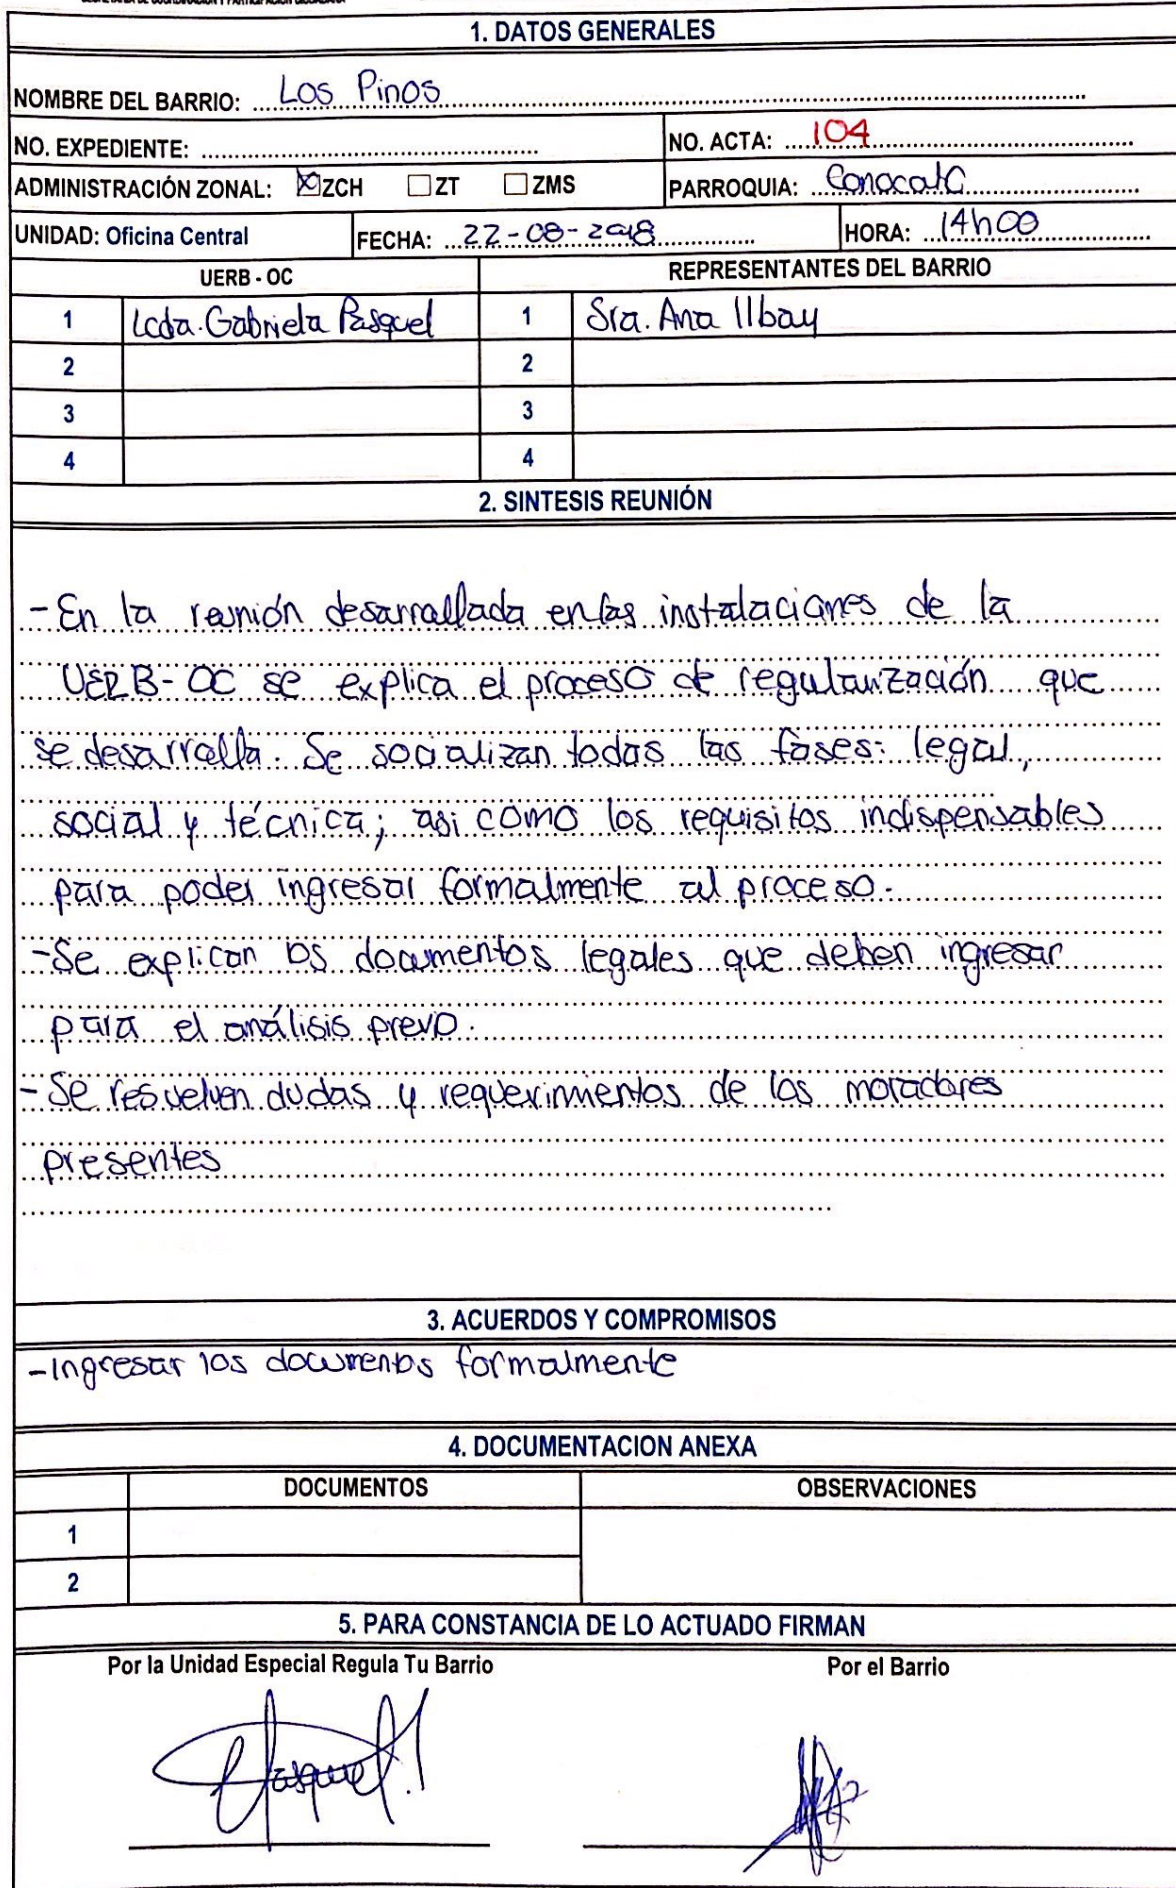 SECRETARÍA DE COORDINACIÓN Y PARTICIPACIÓN CIUDADANA
1. DATOS GENERALES
NOMBRE DEL BARRIO: Los Pinos
NO. EXPEDIENTE: NO. ACTA: 104
ADMINISTRACIÓN ZONAL: ☒ZCH ☐ZT ☐ZMS PARROQUIA: Conocoto
UNIDAD: Oficina Central FECHA: 22-08-2018 HORA: 14h00
UERB - OC REPRESENTANTES DEL BARRIO
1 Lcda. Gabriela Pasquel 1 Sra. Ana Ilbay
2 2
3 3
4 4
2. SINTESIS REUNIÓN
- En la reunión desarrollada en las instalaciones de la
UERB-OC se explica el proceso de regularización que
se desarrolla. Se socializan todas las fases: legal,
social y técnica; asi como los requisitos indispensables
para poder ingresar formalmente al proceso.
- Se explican los documentos legales que deben ingresar
para el análisis previo.
- Se resuelven dudas y requerimientos de los moradores
presentes
3. ACUERDOS Y COMPROMISOS
- Ingresar los documentos formalmente
4. DOCUMENTACION ANEXA
DOCUMENTOS OBSERVACIONES
1
2
5. PARA CONSTANCIA DE LO ACTUADO FIRMAN
Por la Unidad Especial Regula Tu Barrio Por el Barrio